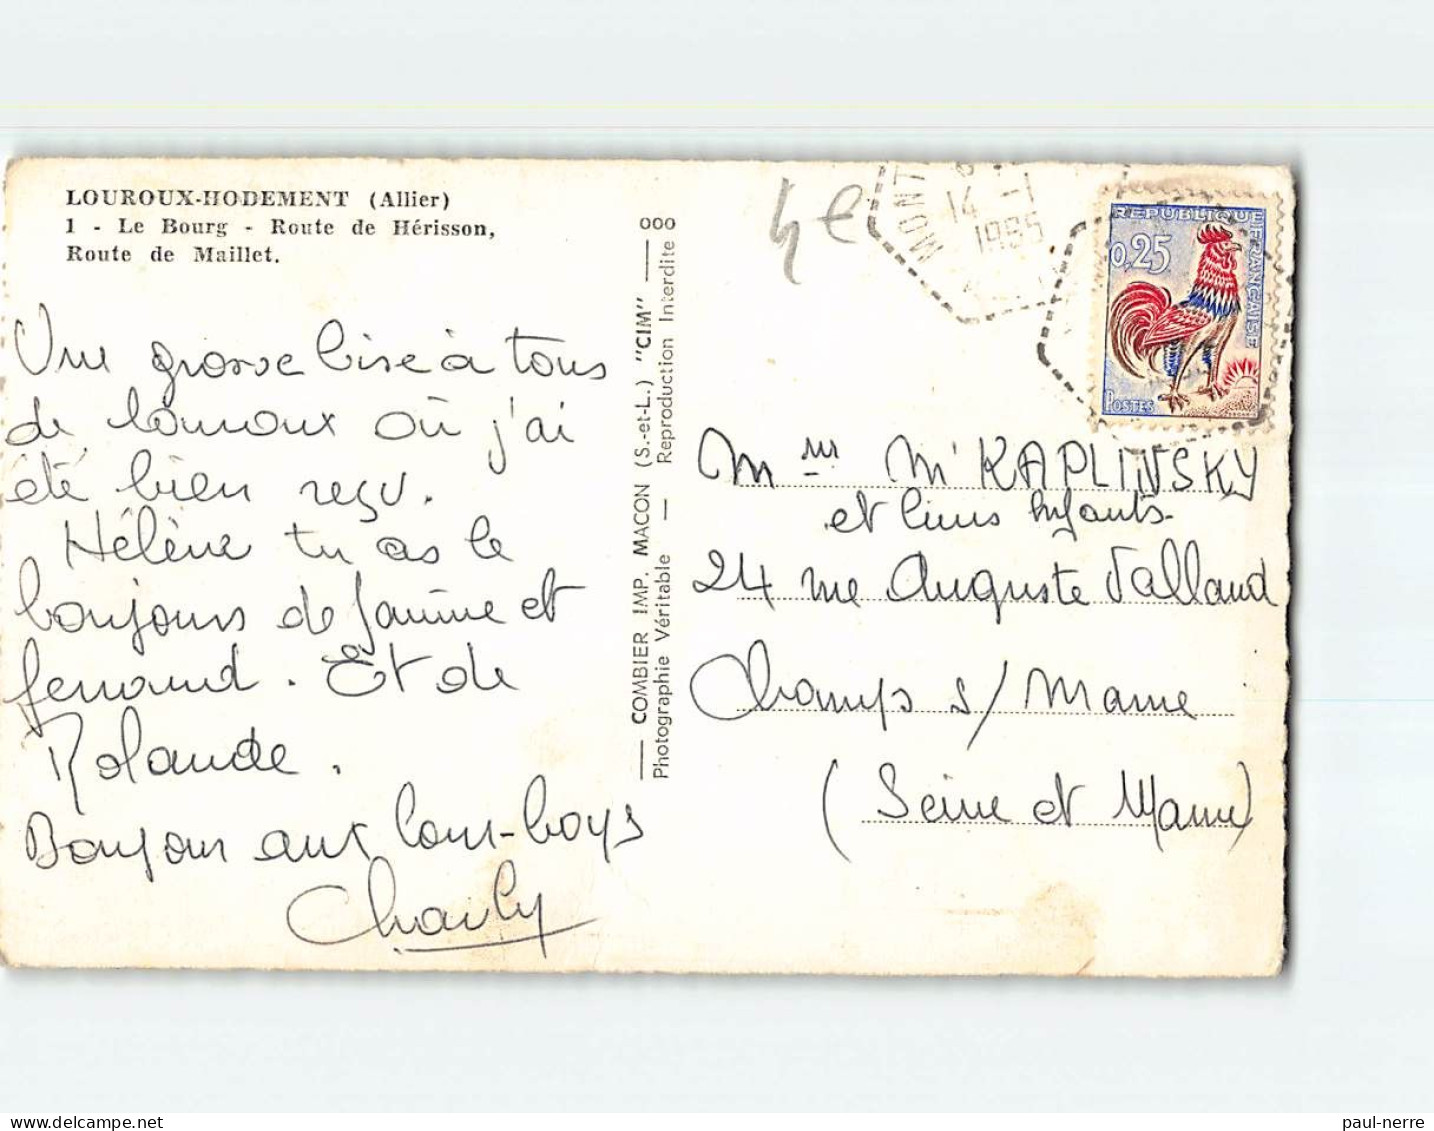 LOUROUX-HODEMENT (Allier)
1 - Le Bourg - Route de Hérisson,
Route de Maillet.
Une grosse bise à tous
de Louroux où j'ai
été bien reçu.
Hélène tu as le
bonjours de Janine et
fernand. Et de
Rolande.
Bonjour aux
Charly
COMBIER IMP. MACON (S.-et-L.) "CIM"
Photographie Véritable — Reproduction Interdite
000
MONT
14 -1
1965
REPUBLIQUE FRANÇAISE
0,25
POSTES
M'KAPLINSKY
et leurs enfants
24 rue Auguste Valland
Champs s/ Marne
(Seine et Marne)
paul-nerre